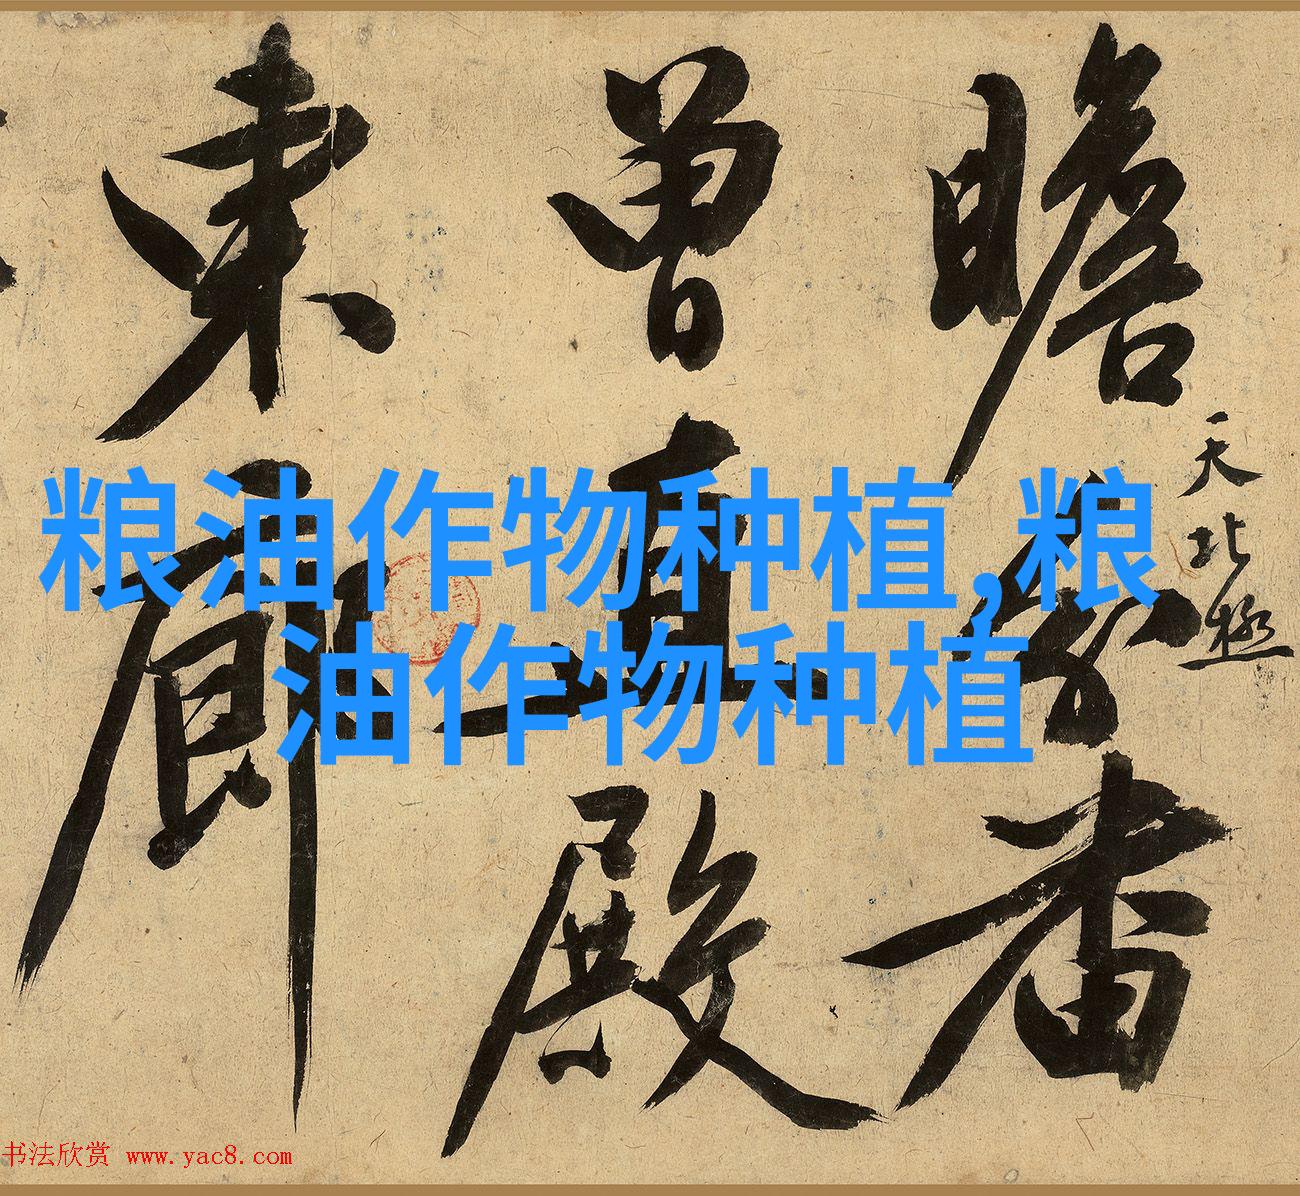 瞻
者
天北極
曾直殿
東廊
粮油作物种植,粮
油作物种植
书法欣赏 www.yac8.com